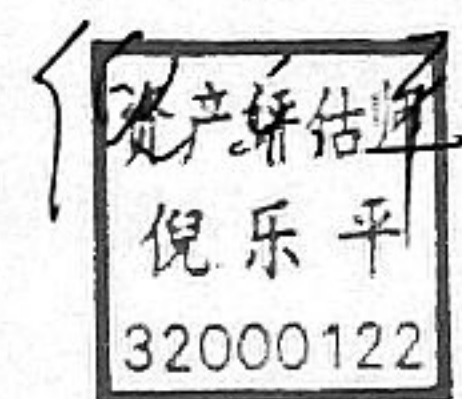 资产评估师
倪乐平
32000122